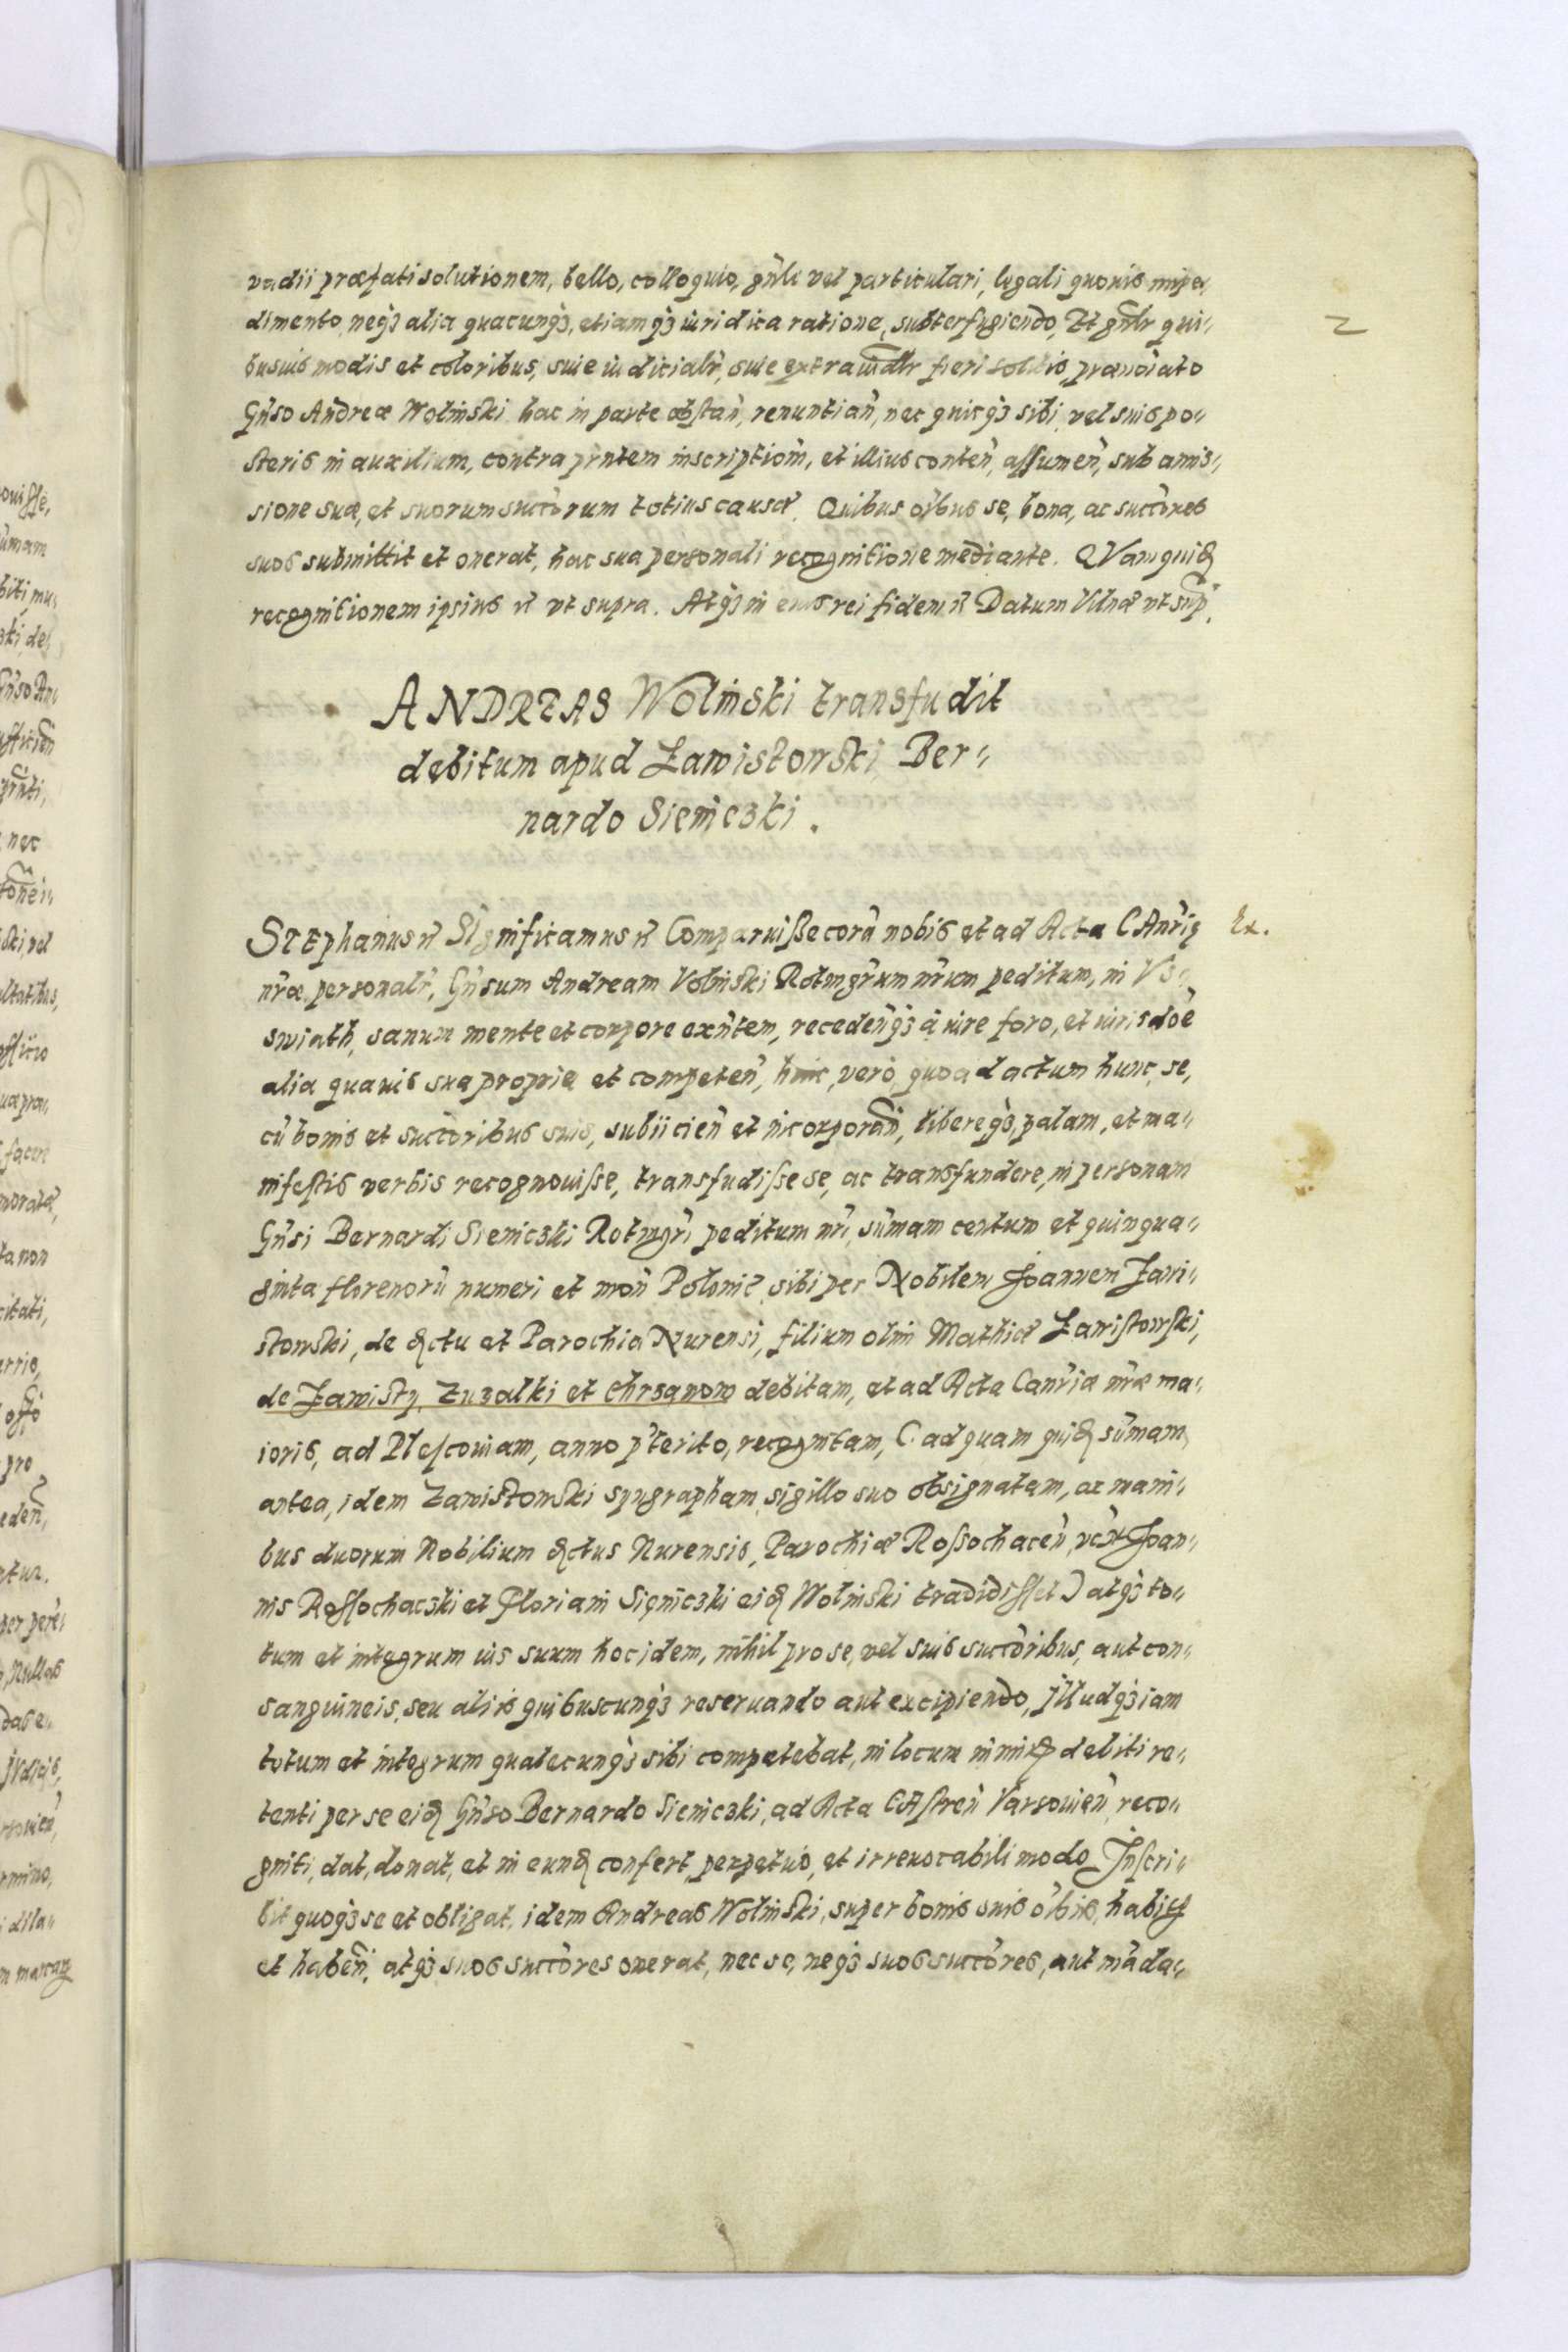 2
vadii præfati solutionem, bello, colloquio, gñli vel particulari, legali quouis impe„
dimento, neqз alia quacunqз, etiamqз iuridica ratione, subterfugiendo, Et gñlr qui„
busuis modis et coloribus, siue iudicialr̃, siue extraiudlr fieri solitis, prænoiato
Gñso Andreæ Wolinski hac in parte obstañ, renuntiañ, nec quicqз sibi, vel suis po„
steris in auxilium, contra prñtem inscriptiom̃, et illius conteñ, assumeñ, sub amis„
sione suæ, et suorum succ̃orum totius causæ. Quibus oĩbus se, bona, ac succ̃ores
suos submittit et onerat, hac sua personali recognitione mediante. QVam quiꝺ
recognitionem ipsius ꝛc̃ vt supra. Atqз in eius rei fidem ꝛc̃ Datum Vilnæ vt sup̃.
ANDREAS Wolinski transfudit
debitum apud Zawistowski Ber„
nardo Sieniczki.
STEphanus ꝛc̃ Significamus ꝛc̃ Comparuisse corã nobis et ad Acta CAnr̃ię
Ex.
nr̃æ personalr̃, Gñsum Andream Volinski Rotmgr̃um nr̃um peditum, in Vs„
swiath, sanum mente et corpore exñtem, recedeñqз à iure foro, et iurisdõe
alia quauis sua propria et competeñ, hinc, verò, quoad actum hunc, se,
cũ bonis et succ̃oribus suis, subiicieñ et incorporañ, libereqз, palam, et ma„
nifestis verbis recognouisse, transfudisse se, ac transfundere, in personam
Gñsi Bernardi Sieniczki Rotmgr̃i peditum nr̃i, sum̃am centum et quinqua„
ginta florenorũ numeri et moñ Poloniæ, sibi per Nobilem Joannem Zawi„
stowski, de ꝺctu et Parochia Nurensi, filium olim Mathiæ Zawistowski,
de Zawisty, Zuzalki et Chrzanow debitam, et ad Acta Canr̃iæ nr̃æ ma„
ioris, ad Plescouiam, anno p̃terito, recognitam, (ad quam quiꝺ sum̃am,
antea, idem Zawistowski syngrapham sigillo suo obsignatam, ac mani„
bus duorum Nobilium ꝺctus Nurensis, Parochiæ Rossochaceñ, vcꝫ Joan„
nis Rossochaczki et Floriani Sieniczki eiꝺ Wolinski tradidisset) atqз to„
tum et integrum ius suum hoc idem, nihil pro se, vel suis succ̃oribus, aut con„
sanguineis, seu aliis quibuscunqз reseruando aut excipiendo, Illudqз iam
totum et integrum qualecunqз sibi competebat, in locum debiti re„
tenti per se eiꝺ Gñso Bernardo Sieniczki, ad Acta CAstreñ Varsouieñ reco„
gniti, dat, donat, et in eunꝺ confert, perpetuò, et irreuocabili modo, Inscri„
bit quoqз se et obligat, idem Andreas Wolinski, super bonis suis oĩbus, habitꝭ
et habeñ, atqз suos succ̃ores onerat, nec se, neqз suos succ̃ores, aut mãda„